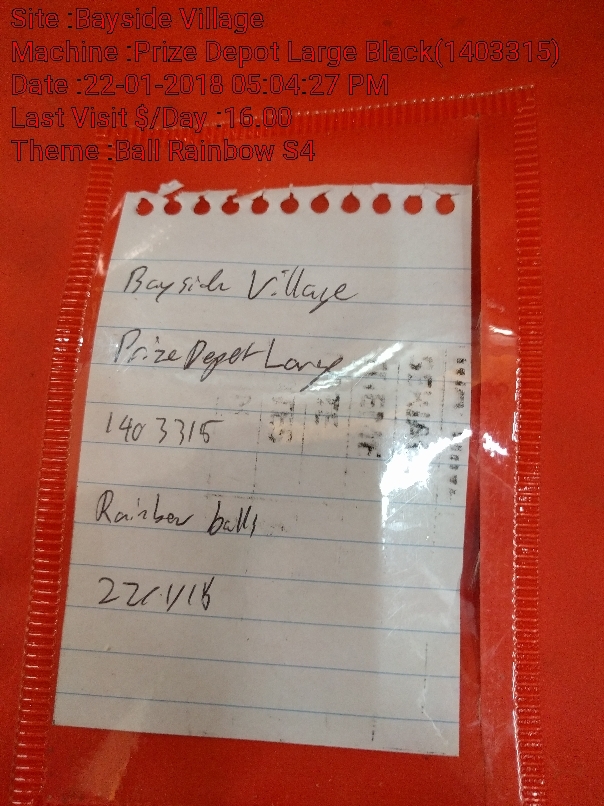 Site :Bayside Village
Machine :Prize Depot Large Black(1403315)
Date :22-01-2018 05:04:27 PM
Last Visit $/Day :16.00
Theme :Ball Rainbow S4
Bayside Village
Prize Depot Large
1403315
Rainbow balls
22/1/18